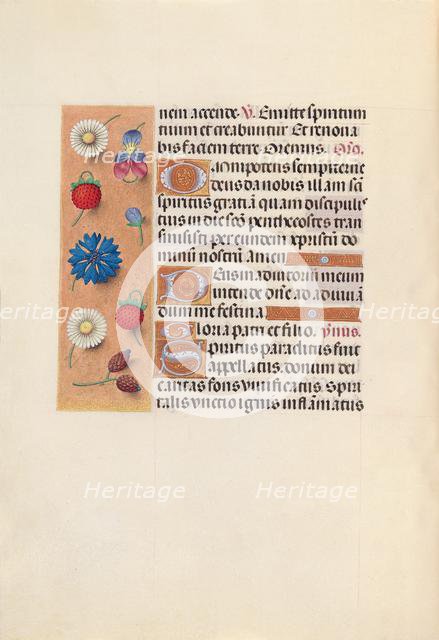 nem accende. V. Emitte spiritum
tuum et creabuntur. Et renoua
bis faciem terre. Oremus. Oro.
Omnipotens sempiterne
deus da nobis illam sc̄i
spiritus gratiā quam discipulis
tuis in die sc̄o penthecostes tran
smisisti per eundem xp̄istū do
minū nostrū amen
Deus in adiutoriū meum
intende. Dn̄e ad adiuuā
dum me festina
Gloria patri et filio. ymus.
Spiritus paraclitus fuit
appellatus. donum dei
caritas fons viuificatus Spiri
talis vnctio ignis inflāmatus
Heritage
Heritage
Heritage
Heritage
Heritage
Heritage